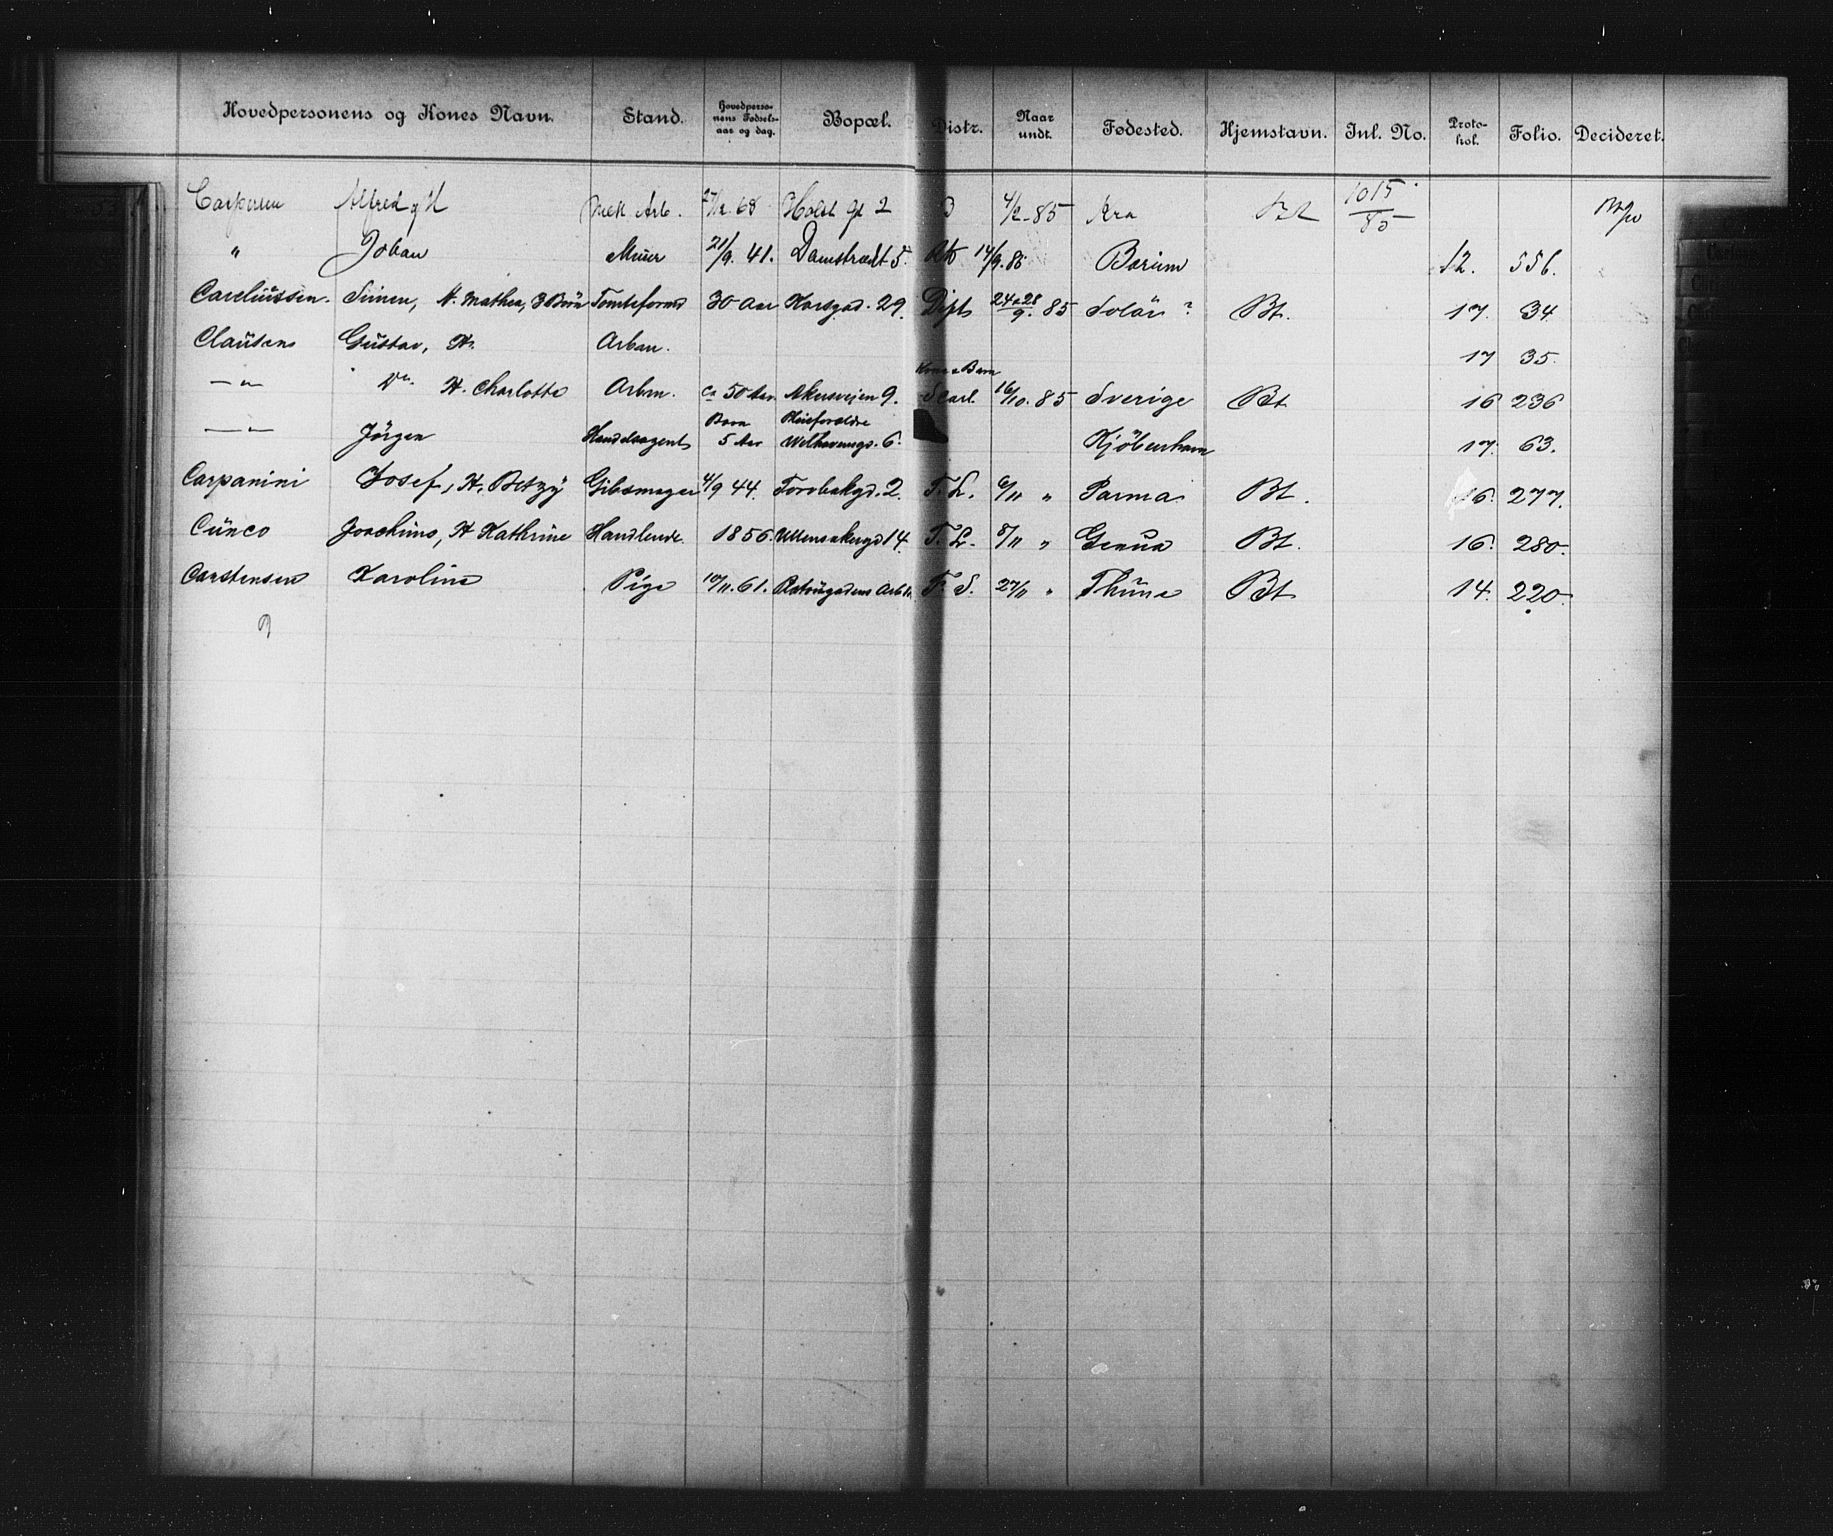 Hovedpersonens og Kones Navn. Stand. Hovedpersonens Fødselsaar og dag. Bopæl. Distr. Naar undt. Fødested. Hjemstavn. Inl. No. Protokol. Folio. Decideret.
Caspersen Alfred g H Mek Arb. 68 Holst g 2 4/2-85 Kra 1015/85
" Johan Murer 21/9.41. Damstrædet 5. 14/9.85 Bærum 12. 556.
Careliussen. Simen, H. Mathea, 3 Børn Tomteformd 30 Aar Korsgad. 29. Dipt 24 a 28/9.85 Solør ? Bt. 17. 34
Clausen Gustav, H. Arbm. 17 35.
—"— Do. H. Charlotte Arbm. ca 50 Aar. Akersveien 9. Kone o Barn S Carl. 16/10.85 Sverige Bt 16 236
—"— Jörgen Handelsagent Barn 5 Aar Pleieforældre Welhavensgd. 6. Kjøbenhavn 17. 63.
Carpanini Josef, H. Betzy Gibsmager 4/9 44. Torvbakgd. 2. F. L. 6/11 " Parma Bt. 16. 277.
Cunco Joachimo, H Kathrine Handlende. 1856. Ullensakergd 14. F. L. 8/11 " Genua Bt. 16. 280.
Carstensen Karoline Pige 10/11.61. F. S. 27/11 " Thune Bt 14. 220.